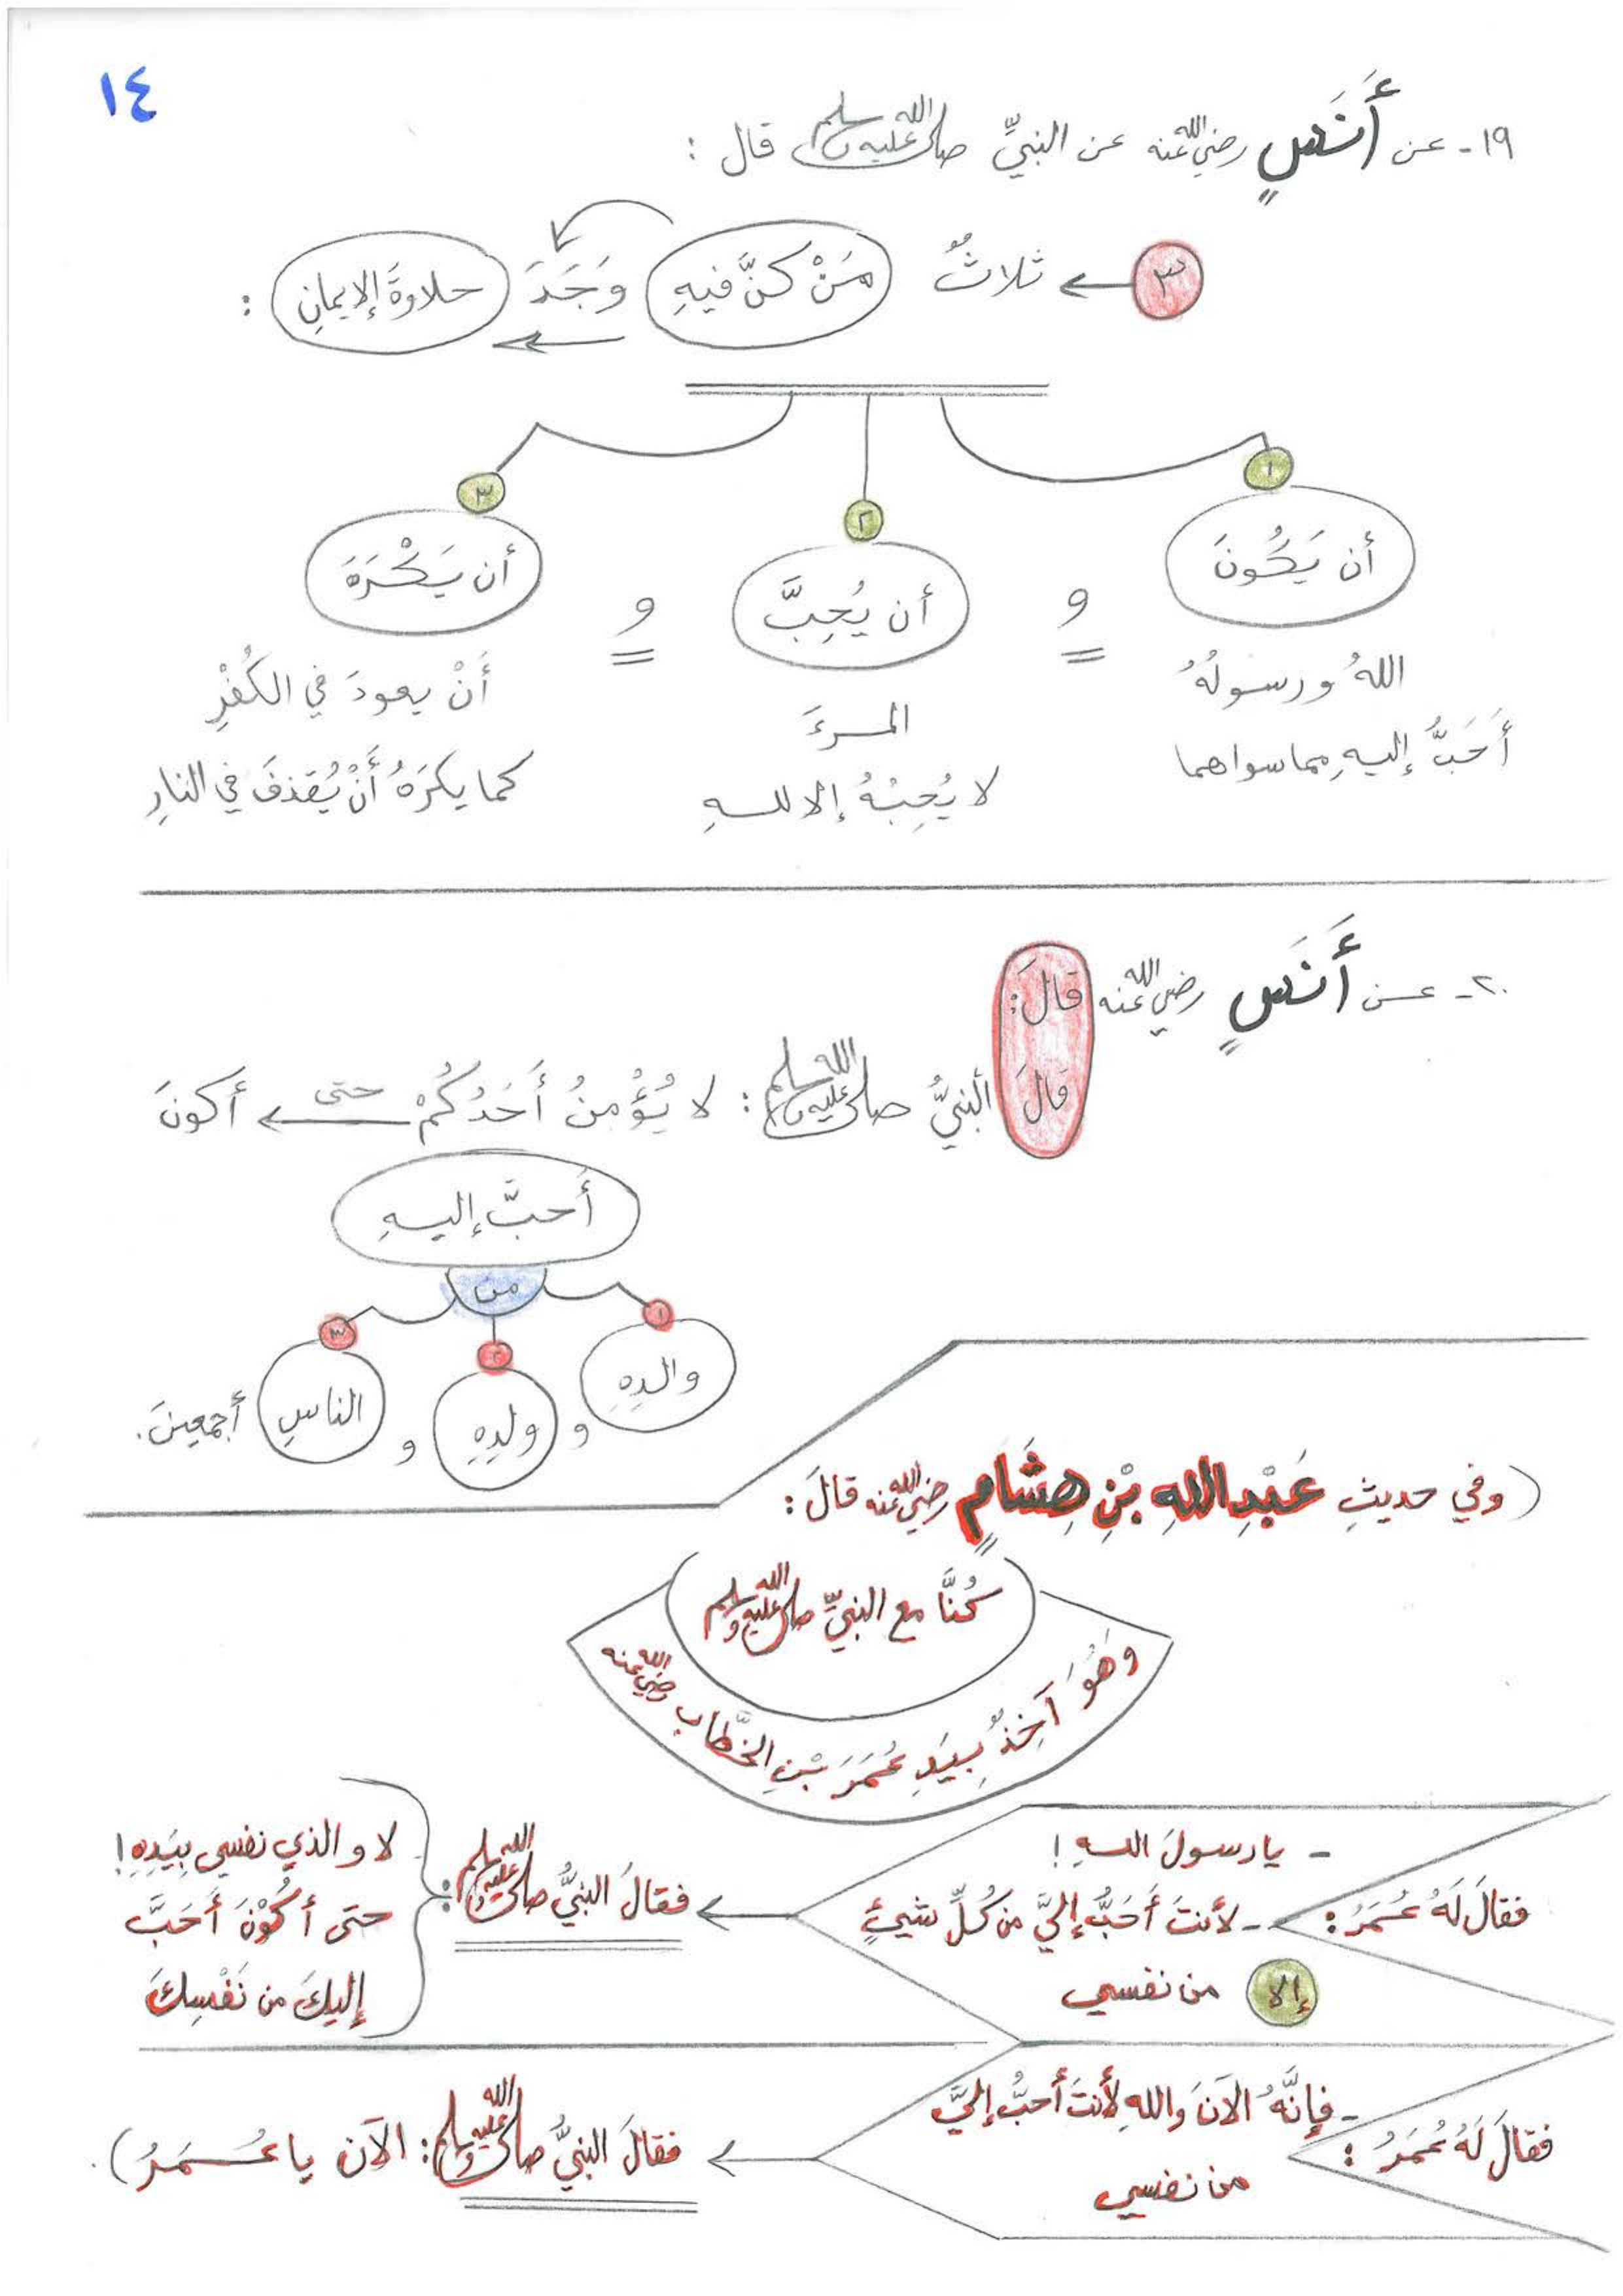 ١٤
١٩- عن أَنَسٍ رضي الله عنه عن النبيِّ صلى الله عليه وسلم قال :
٣ ثلاثٌ مَنْ كنَّ فيهِ وَجَدَ حلاوةَ الإيمانِ :
١
أن يَكُونَ
اللهُ ورسولُهُ
أَحَبَّ إليهِ مما سواهما
و
٢
أن يُحِبَّ
المرءَ
لا يُحِبُّهُ إلا للهِ
و
٣
أن يَكْرَهَ
أَنْ يعودَ في الكُفْرِ
كما يكرَهُ أَنْ يُقذفَ في النارِ
٢٠- عن أَنَسٍ رضي الله عنه قَالَ:
قالَ النبيُّ صلى الله عليه وسلم : لا يُؤْمِنُ أَحَدُكُمْ حتى أكونَ
أَحبَّ إليهِ
من
١ والدِهِ
و
٢ ولدِهِ
و
٣ الناسِ أجمعينَ.
(وفي حديثِ عَبْدِ اللهِ بْنِ هِشَامٍ رضي الله عنه قالَ :
كُنَّا مع النبيِّ صلى الله عليه وسلم
وهُوَ آخِذٌ بِيَدِ عُمَرَ بْنِ الخَطَّابِ رضي الله عنه
فقالَ لَهُ عُمَرُ :
- يا رسولَ اللهِ !
- لأنتَ أَحَبُّ إليَّ من كُلِّ شيءٍ
إلا من نفسي
فقالَ النبيُّ صلى الله عليه وسلم :
لا والذي نفسي بِيَدِهِ!
حتى أكُوْنَ أَحَبَّ
إليكَ من نَفْسِكَ
فقالَ لَهُ عُمَرُ :
- فإِنَّهُ الآنَ واللهِ لأَنتَ أحبُّ إليَّ
من نفسي
فقالَ النبيُّ صلى الله عليه وسلم : الآن يا عُمَرُ).